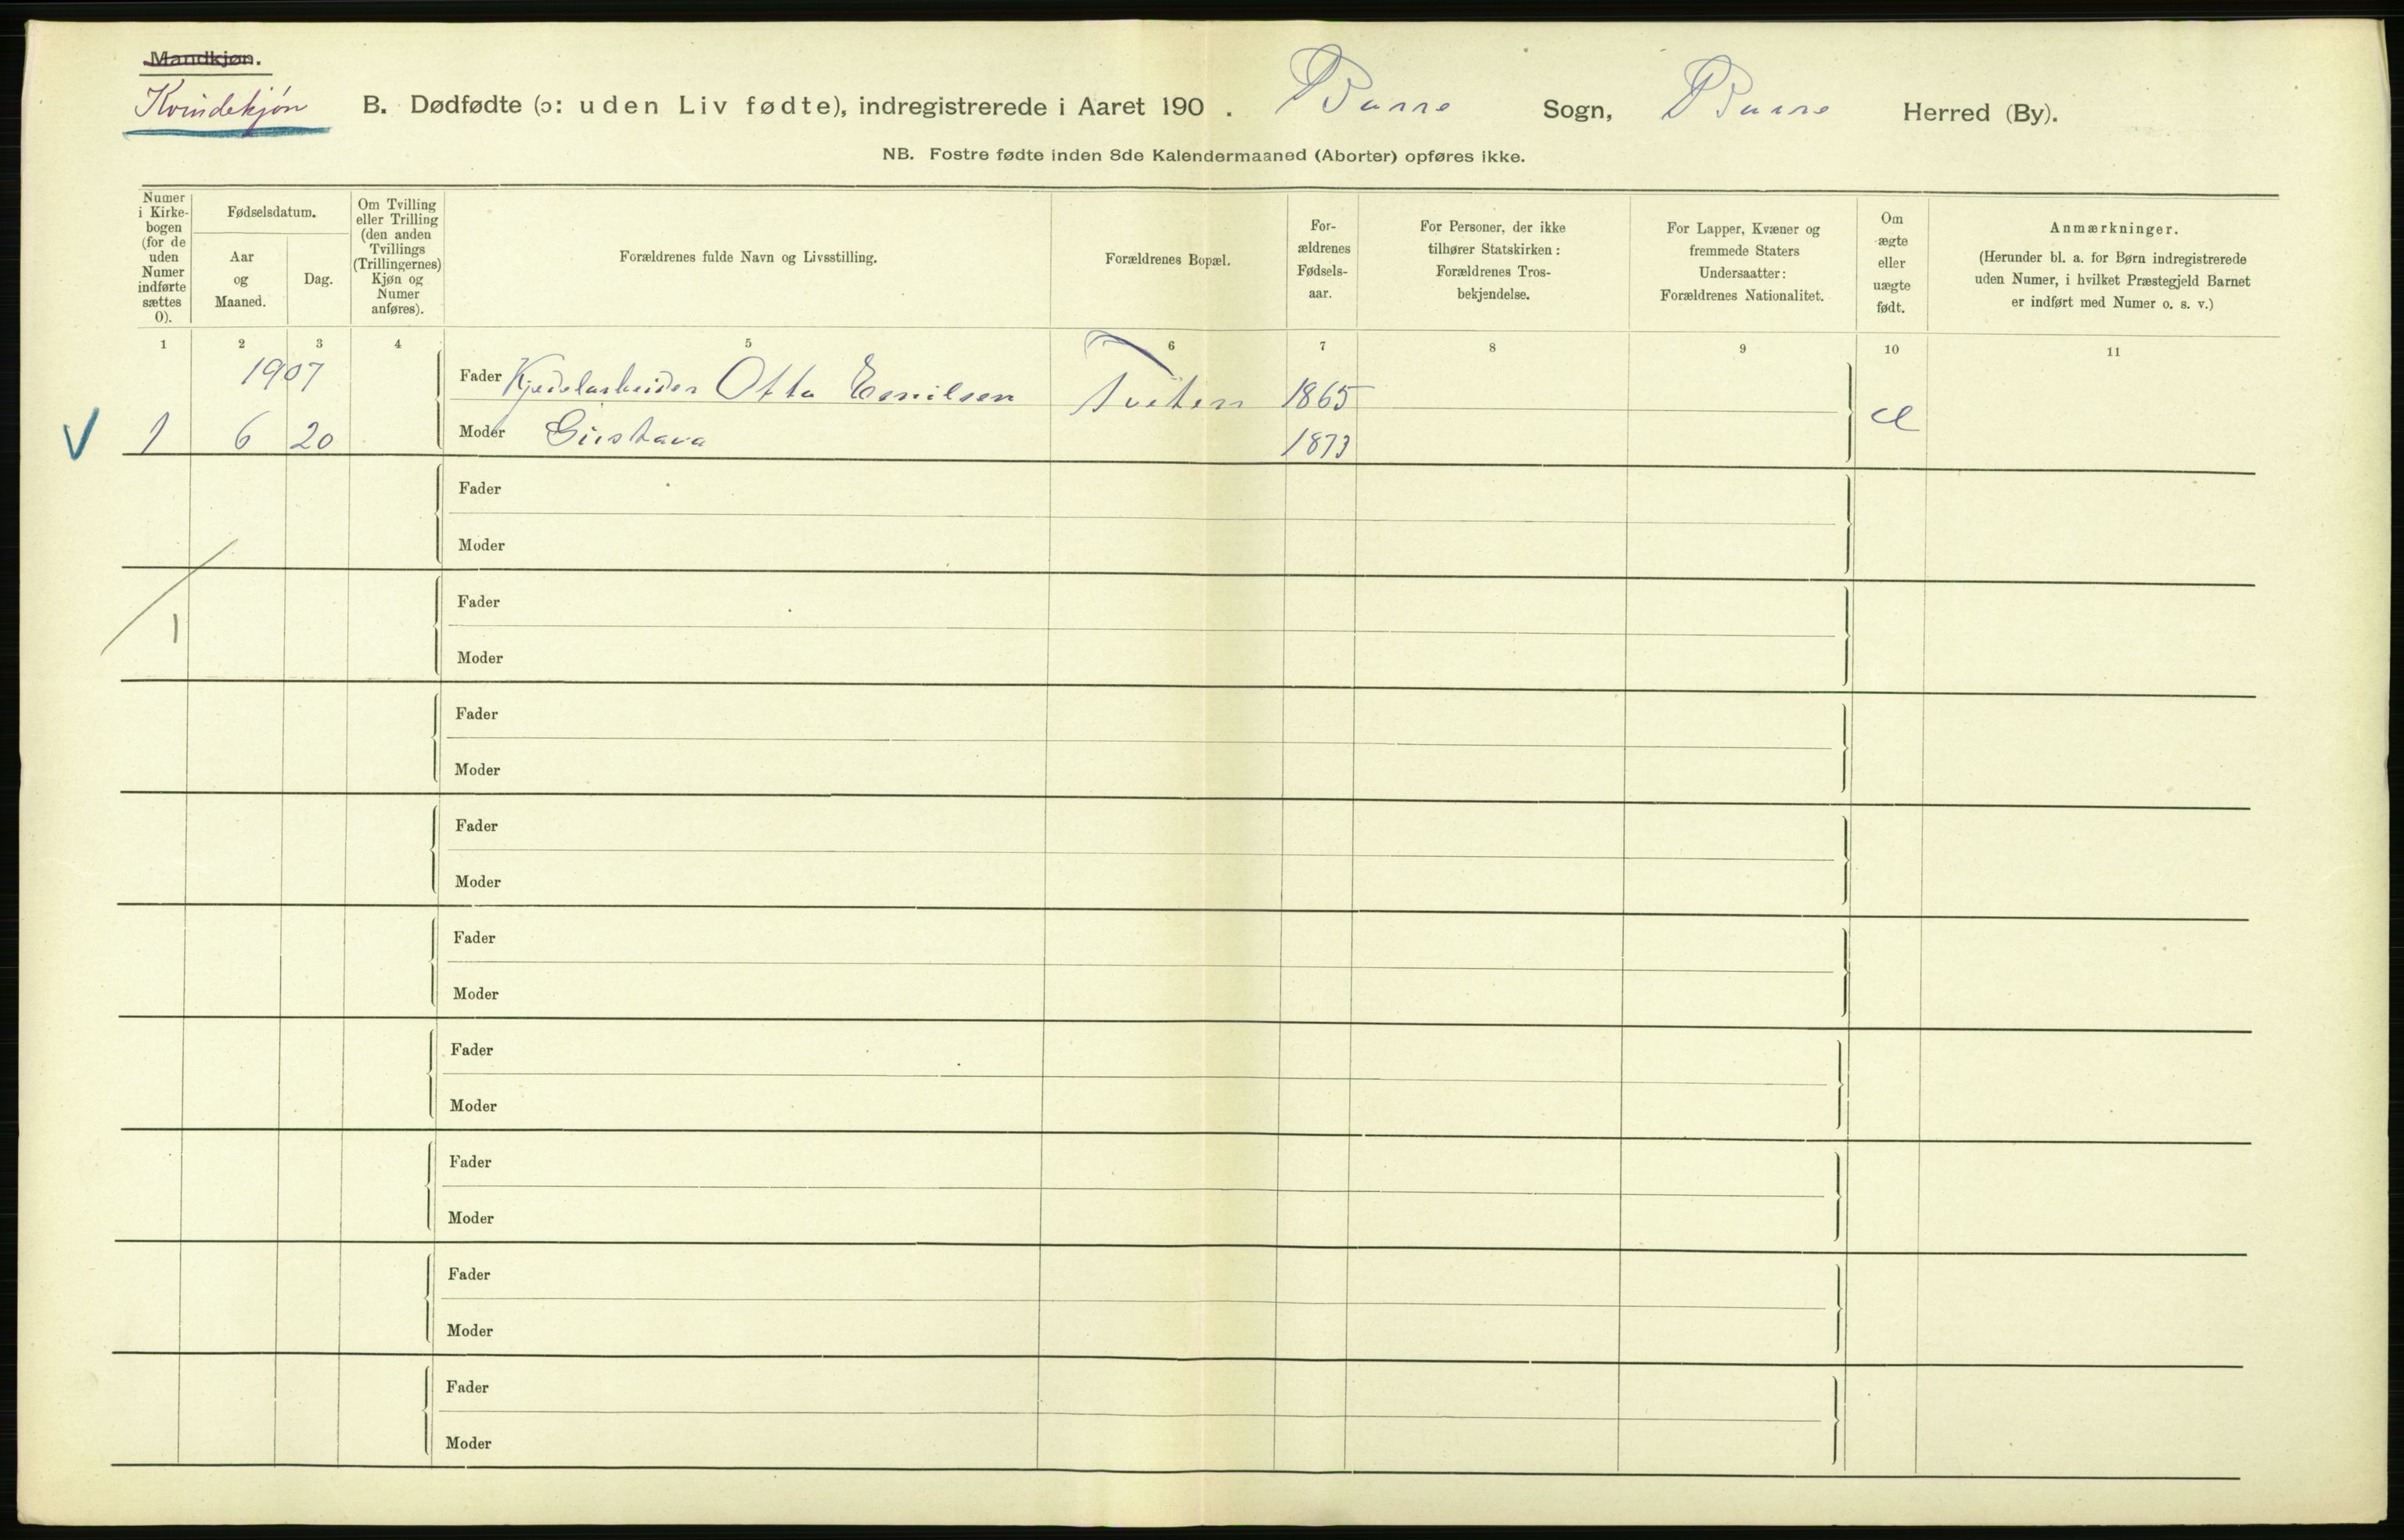 Mandkjøn.
Kvindekjøn
B. Dødfødte (ɔ: uden Liv fødte), indregistrerede i Aaret 190 . Borre Sogn, Borre Herred (By).
NB. Fostre fødte inden 8de Kalendermaaned (Aborter) opføres ikke.
Numer i Kirke-bogen (for de uden Numer indførte sættes 0).
Fødselsdatum.
Aar og Maaned.
Dag.
Om Tvilling eller Trilling (den anden Tvillings (Trillingernes) Kjøn og Numer anføres).
Forældrenes fulde Navn og Livsstilling.
Forældrenes Bopæl.
For-ældrenes Fødsels-aar.
For Personer, der ikke tilhører Statskirken: Forældrenes Tros-bekjendelse.
For Lapper, Kvæner og fremmede Staters Undersaatter: Forældrenes Nationalitet.
Om ægte eller uægte født.
Anmærkninger.
(Herunder bl. a. for Børn indregistrerede uden Numer, i hvilket Præstegjeld Barnet er indført med Numer o. s. v.)
1 2 3 4 5 6 7 8 9 10 11
1907
Fader Kjedelarbeider Otto Emilsen Tveten 1865
V 1 6 20 Moder Gustava 1873
Fader
Moder
Fader
1
Moder
Fader
Moder
Fader
Moder
Fader
Moder
Fader
Moder
Fader
Moder
Fader
Moder
Fader
Moder